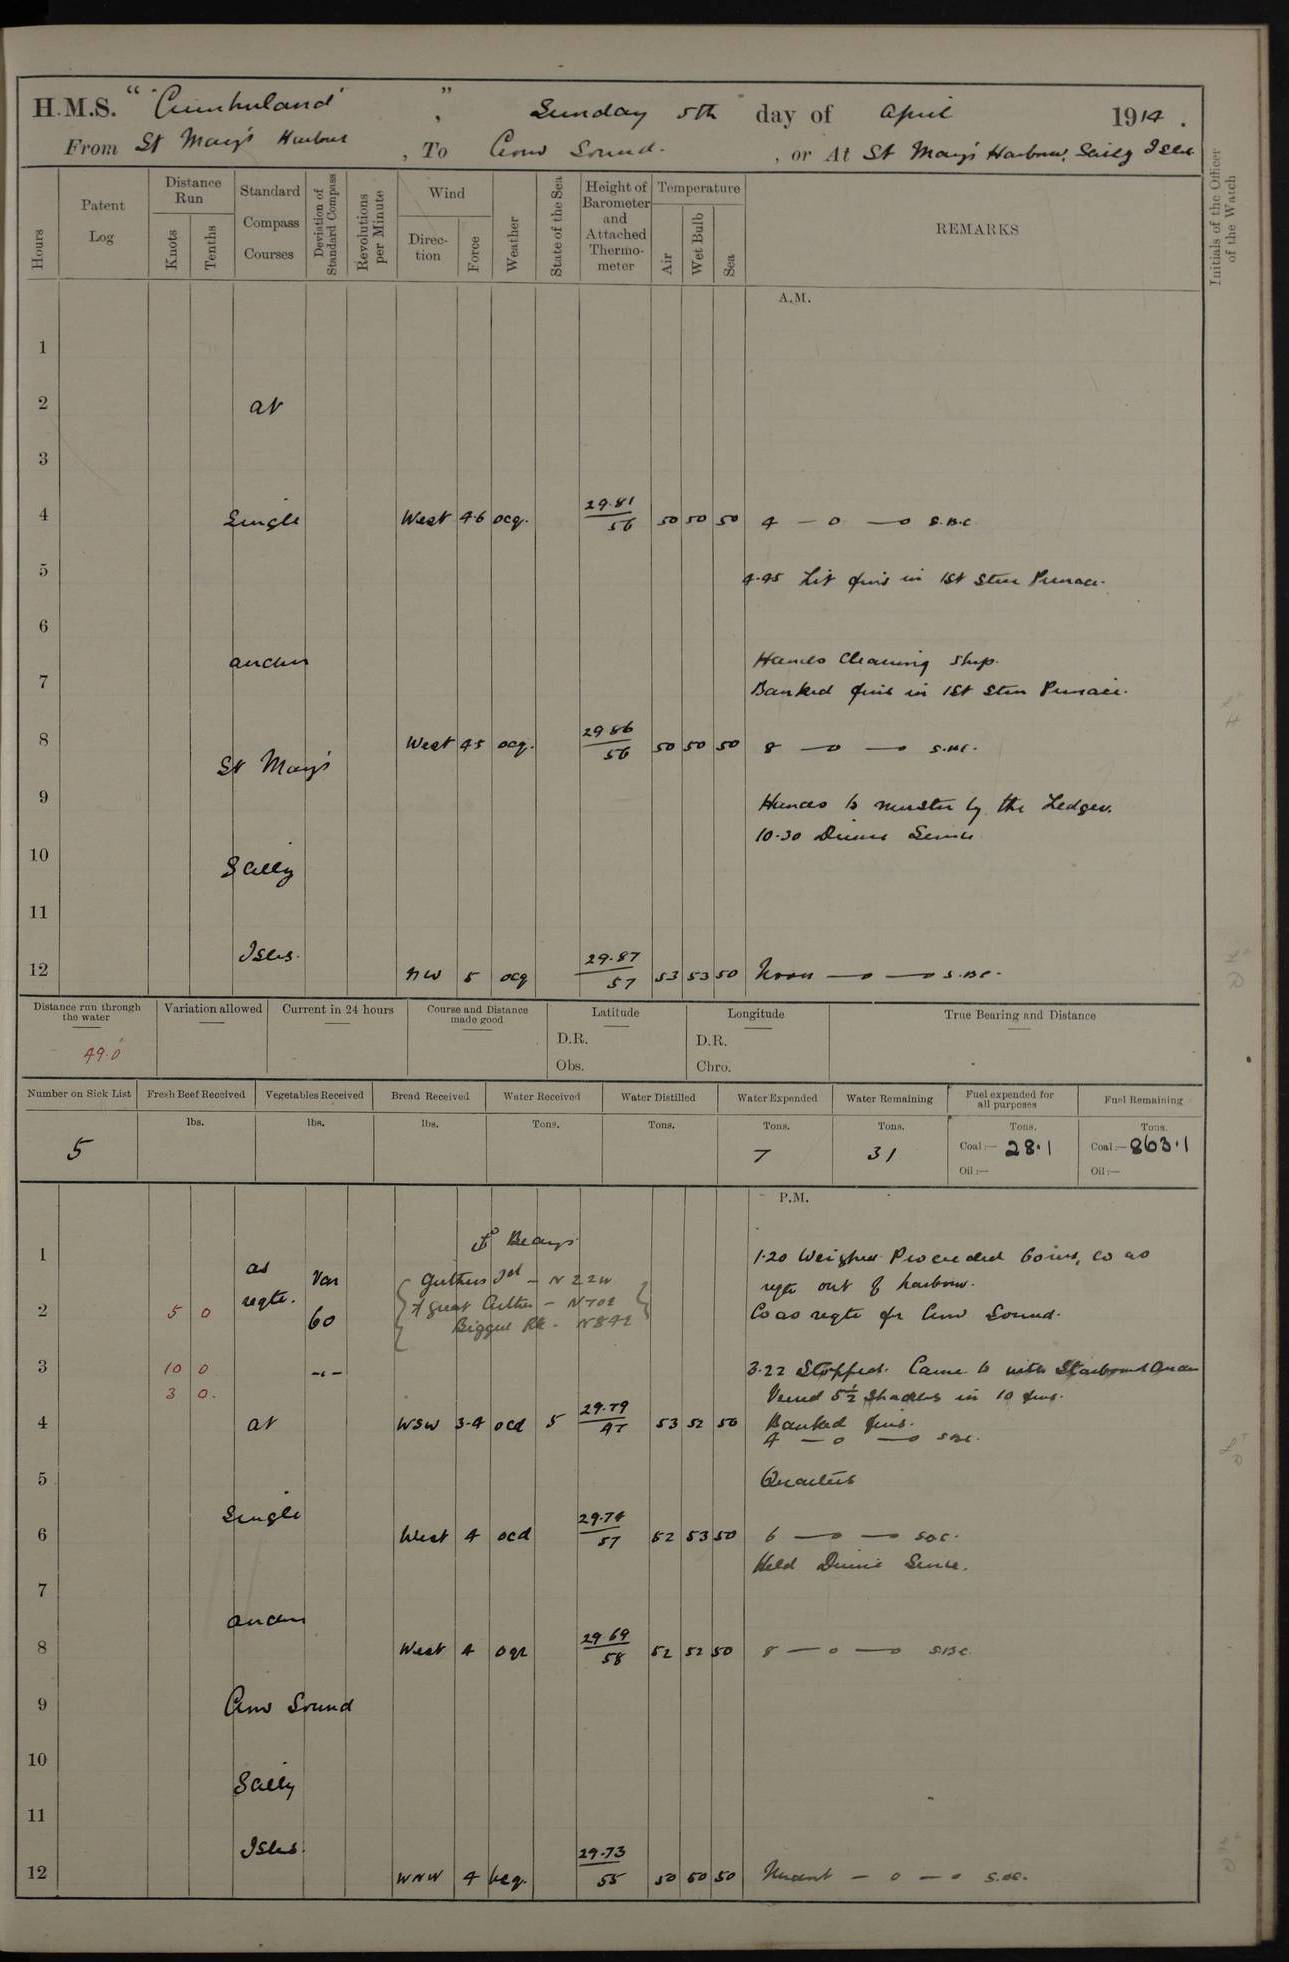 H.M.S. "Cumberland", Sunday 5th day of April 1914.
From St Mary's Harbour, To Crow Sound., or At St Mary's Harbour, Scilly Isles
Hours
Patent Log
Distance Run
Knots
Tenths
Standard Compass Courses
Deviation of Standard Compass
Revolutions per Minute
Wind
Direction
Force
Weather
State of the Sea
Height of Barometer and Attached Thermometer
Temperature
Air
Wet Bulb
Sea
REMARKS
Initials of the Officer of the Watch
A.M.
1
2 at
3
4 Single West 4·6 ocq. 29·81 56 50 50 50 4 — o —o S.B.C
5 4·45 Lit fires in 1st Stm Pinnace.
6
anchor Hands Cleaning Ship.
7 Banked fires in 1st Stm Pinnace.
8 West 45 ocq. 29 86 56 50 50 50 8 —o —o S.B.C.
St Mary's
9 Hands to muster by the Ledger.
10·30 Divine Service
10 Scilly
11
Isles.
12 NW 5 ocq 29·87 57 53 53 50 Noon —o —o S.B.C.
Distance run through the water
49.0
Variation allowed
Current in 24 hours
Course and Distance made good
Latitude
D.R.
Obs.
Longitude
D.R.
Chro.
True Bearing and Distance
Number on Sick List
5
Fresh Beef Received
lbs.
Vegetables Received
lbs.
Bread Received
lbs.
Water Received
Tons.
Water Distilled
Tons.
Water Expended
Tons.
7
Water Remaining
Tons.
31
Fuel expended for all purposes
Tons.
Coal:— 28·1
Oil:—
Fuel Remaining
Tons.
Coal:— 863·1
Oil:—
P.M.
Bearings
1 1·20 Weighed Proceeded Co as
as Var N 22W
reqte. reqte out of harbour.
2 5 0 60 Great N70E Co as reqte for Crow Sound.
N84E
3 10 0 3·22 Stopped. Came to with Starboard Anchor
3 0. Veered 5½ Shackles in 10 fms.
4 at WSW 3·4 ocd 5 29·79 53 52 50 Banked fires.
4 —o —o SBC.
5 Quarters
Single
6 West 4 ocd 29·74 57 52 53 50 6 —o —o SBC.
Held Divine Service.
7
anchor
8 West 4 29·69 58 52 52 50 8 — o —o SBC
9 Crow Sound
10
Scilly
11
Isles.
12 WNW 4 bcq. 29·73 55 50 50 50 Midnt — o —o S.BC.